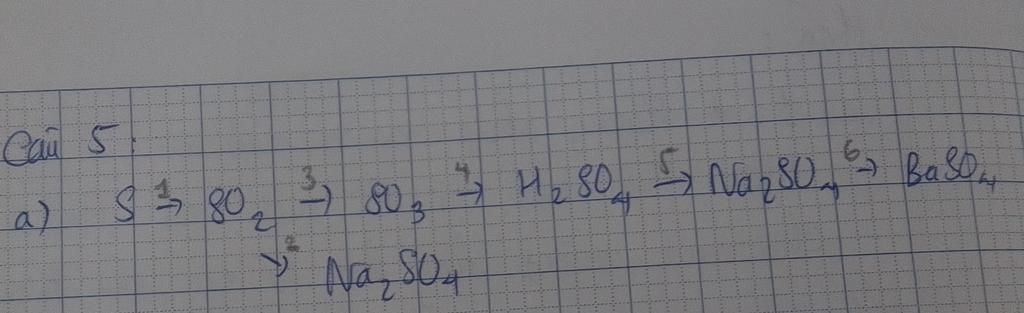 Câu 5:
a) S 1→ SO₂ 3→ SO₃ 4→ H₂SO₄ 5→ Na₂SO₄ 6→ BaSO₄
2→ Na₂SO₄